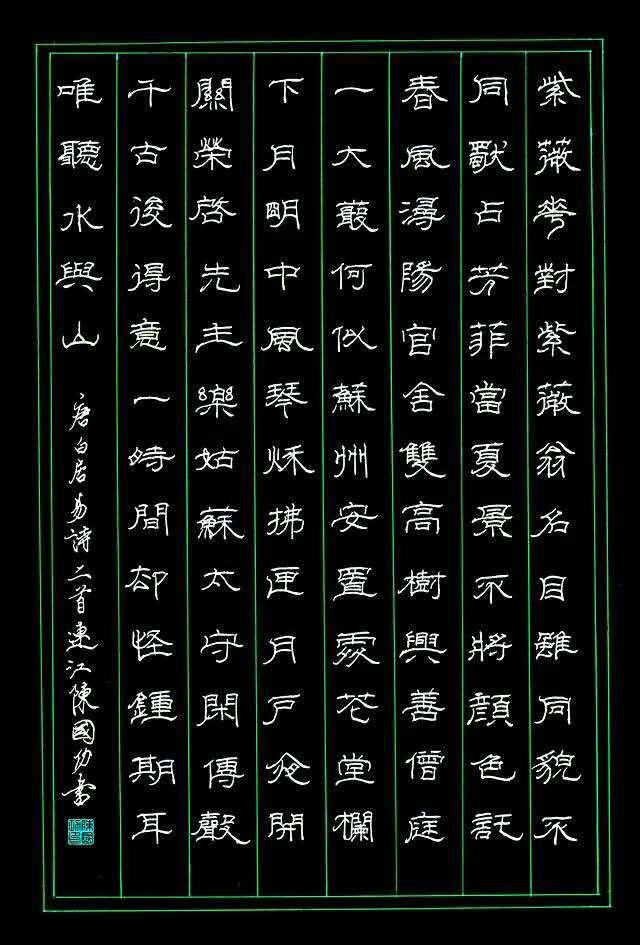 紫薇花對紫薇翁名目雖同貌不
同獨占芳菲當夏景不將顏色託
春風潯陽官舍雙高樹興善僧庭
一大叢何似蘇州安置處花堂欄
下月明中風琴秋拂匣月戶夜開
關榮啓先生樂姑蘇太守閑傳聲
千古後得意一時間却怪鍾期耳
唯聽水與山
唐白居易詩二首連江陳國書